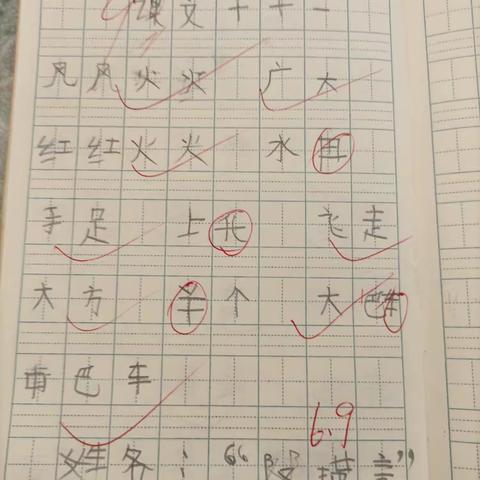 课文十十一
风风火火 广大
红红火火 水
手足 上 飞走
大方 个 大巴
巴车
6.9
姓名：“